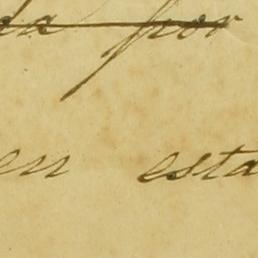 da por
en esta